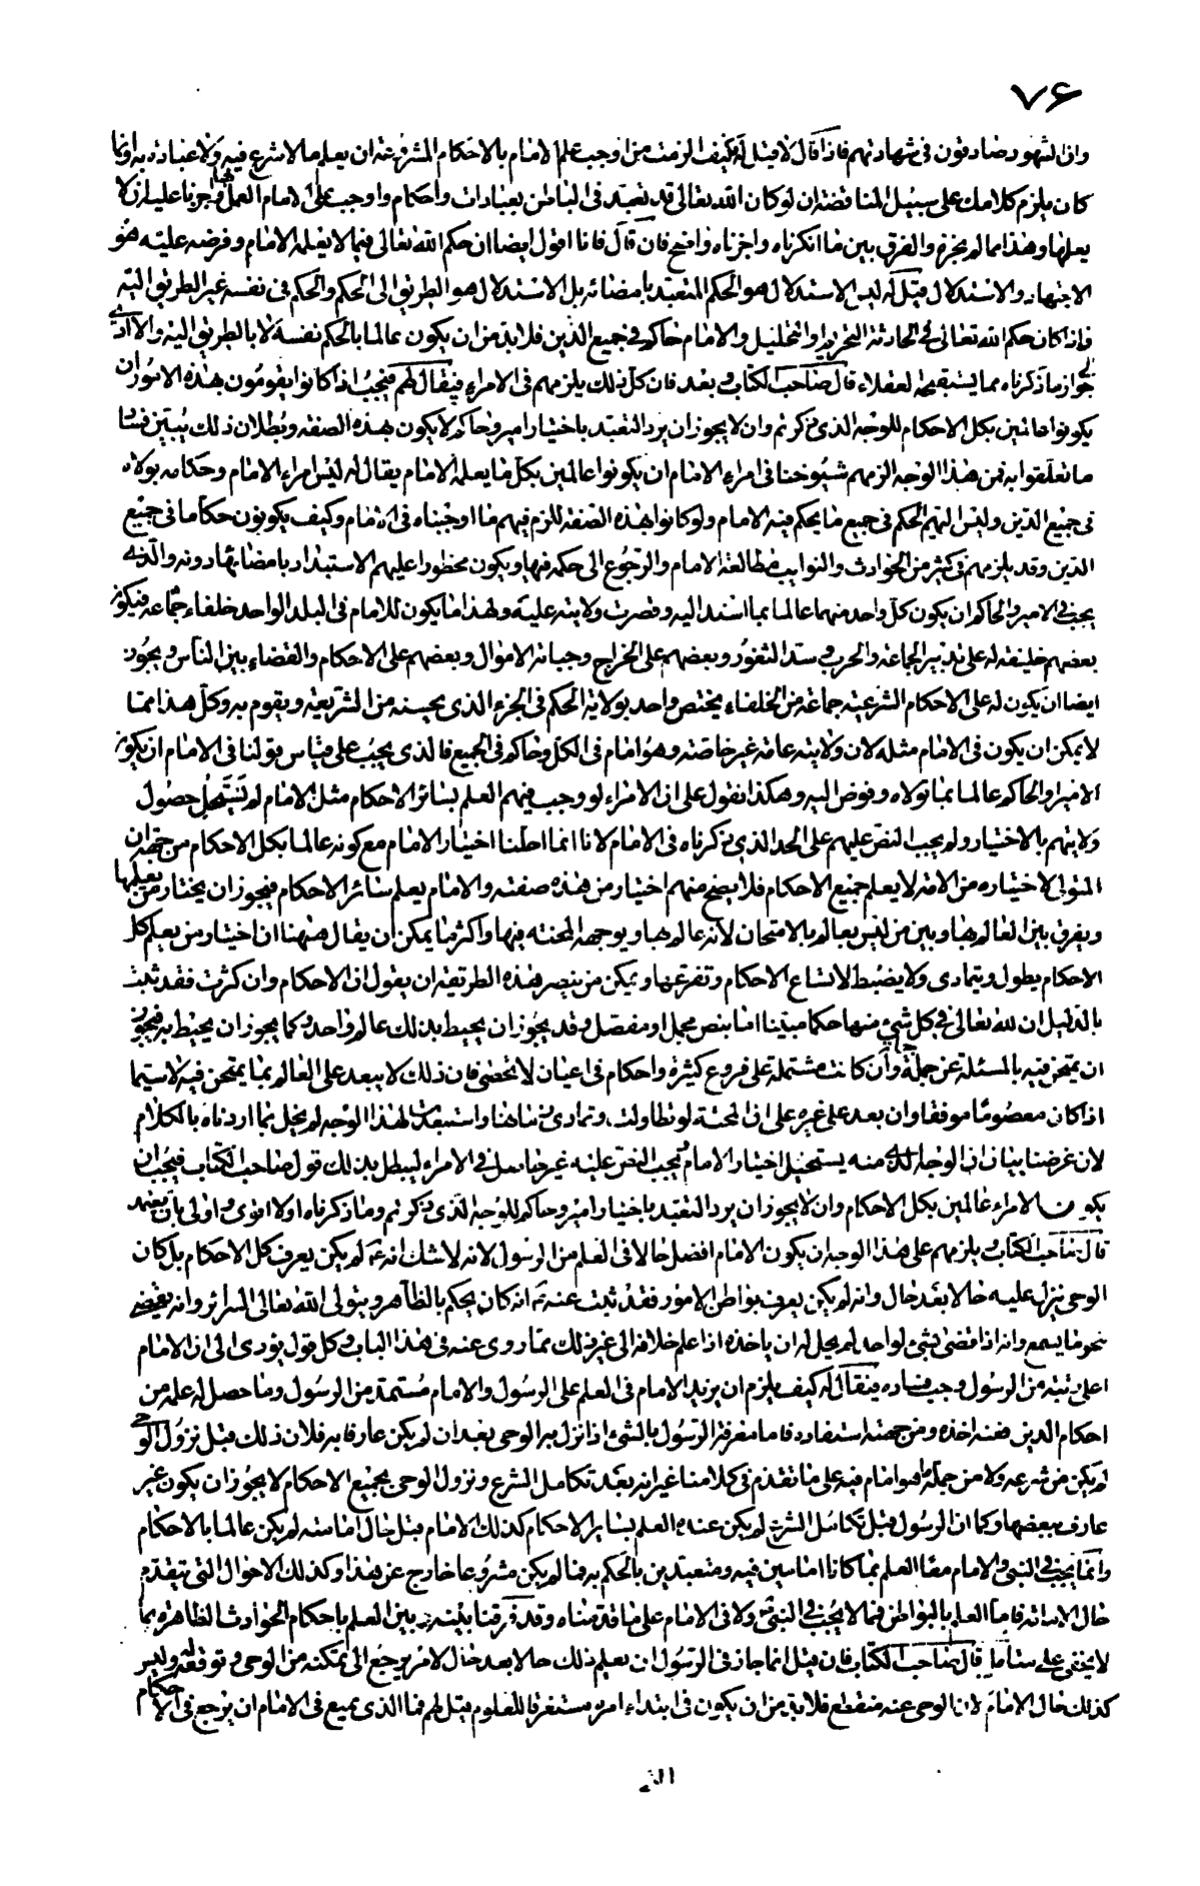 ٧۶
وان الشهود صادقون فى شهادتهم فاذا قال لا قيل له فكيف الزمت من اوجب علم الامام بالاحكام المشروعة ان يعلم ما لا شرع فيه ولا عبادة به وانما
كان يلزم كلامك على سبيل المناقضة ان لو كان الله تعالى قد تعبد فى الباطن بعبادات واحكام واوجب على الامام العمل بها وجوزنا عليه ان لا
يعلمها وهذا مما لم نجزه والفرق بين ما انكرناه واجزناه واضح فان قال فانا اقول ايضا ان حكم الله تعالى فيما لا يعلمه الامام وفرضه عليه هو
الاجتهاد والاستدلال قيل له ليس الاستدلال هو الحكم المتعبد بامضائه بل الاستدلال هو الطريق الى الحكم والحكم فى نفسه غير الطريق اليه
فاذا كان حكم الله تعالى فى الحادثة التحريم او التحليل والامام حاكم فى جميع الدين فلا بد من ان يكون عالما بالحكم نفسه لا بالطريق اليه والا ادى
الى جواز ما ذكرناه مما يستقبحه العقلاء قال صاحب الكتاب وبعد فان كل ذلك يلزمهم فى الامراء فيقال لهم فيجب اذا كانوا يقومون بهذه الامور ان
يكونوا عالمين بكل الاحكام للوجه الذى ذكرتم وان لا يجوز ان يرد التعبد باختيار امير وحاكم لا يكون بهذه الصفة وبطلان ذلك يبين فساد
ما تعلقوا به فمن هذا الوجه الزمهم شيوخنا فى امراء الامام ان يكونوا عالمين بكل ما يعلمه الامام يقال له ليس امراء الامام وحكامه بولاة
فى جميع الدين وليس اليهم الحكم فى جميع ما يحكم فيه الامام ولو كانوا بهذه الصفة للزم فيهم ما اوجبناه فى الامام وكيف يكونون حكاما فى جميع
الدين وقد يلزمهم فى كثير من الحوادث والنوايب مطالعة الامام والرجوع الى حكمه فيها ويكون محظورا عليهم الاستبداد بامضائها دونه والذى
يجب فى الامير والحاكم ان يكون كل واحد منهما عالما بما اسند اليه وقصرت ولايته عليه ولهذا ما يكون للامام فى البلد الواحد خلفاء جماعة فيكون
بعضهم خليفة له على تدبير الجماعة والحرب وسد الثغور وبعضهم على الخراج وجباية الاموال وبعضهم على الاحكام والقضاء بين الناس ويجوز
ايضا ان يكون له على الاحكام الشرعية جماعة من الخلفاء يختص واحد بولاية الحكم فى الجزء الذى يحسنه من الشريعة ويقوم به وكل هذا مما
لا يمكن ان يكون فى الامام مثله لان ولايته عامة غير خاصة وهو امام فى الكل وحاكم فى الجميع فالذى يجب على قياس قولنا فى الامام ان يكون
الامير والحاكم عالما بما تولاه وفوض اليه وهكذا نقول على ان الامراء لو وجب فيهم العلم بسائر الاحكام مثل الامام لم يستحل حصول
ولايتهم بالاختيار ولم يجب النص عليهم على الحد الذى ذكرناه فى الامام لانا انما احلنا اختيار الامام مع كونه عالما بكل الاحكام من جهة ان
المتولى لاختياره من الامة لا يعلم جميع الاحكام فلا يصح منهم اختيار من هذه صفته والامام يعلم سائر الاحكام فيجوز ان يختار من يعلمها
ويفرق بين العالم بها وبين من ليس بعالم بالامتحان لانه عالم بها ويوجه المحنة فيها واكثر ما يمكن ان يقال ههنا ان اختيار من يعلم كل
الاحكام يطول ويتمادى ولا يضبط لاتساع الاحكام وتفرعها ويمكن من ينصر هذه الطريقة ان يقول ان الاحكام وان كثرت فقد ثبت
بالدليل ان لله تعالى فى كل شىء منها حكما مبينا اما بنص مجمل او مفصل وقد يجوز ان يحيط بذلك عالم واحد وكما يجوز ان يحيط به فيجوز
ان يمتحن فيه بالمسئلة عن جمله وان كانت مشتملة على فروع كثيرة واحكام فى اعيان لا تحصى فان ذلك لا يبعد على العالم بما يمتحن فيه لا سيما
اذا كان معصوما موفقا وان بعد على غيره على ان المحنة لو تطاولت وتمادى زمانها واستبعدت لهذا الوجه لم يخل بما اردناه بالكلام
لان غرضنا بيان ان الوجه الذى منه يستحيل اختيار الامام ويجب النص عليه غير حاصل فى الامراء ليبطل بذلك قول صاحب الكتاب فيجب ان
يكون الامراء عالمين بكل الاحكام وان لا يجوز ان يرد التعبد باختيار امير وحاكم للوجه الذى ذكرتم وما ذكرناه اولا اقوى واولى بان يعتمد
قال صاحب الكتاب ويلزمهم على هذا الوجه ان يكون الامام افضل حالا فى العلم من الرسول لانه لا شك انه ع لم يكن يعرف كل الاحكام بل كان
الوحى ينزل عليه حالا بعد حال وانه لم يكن يعرف بواطن الامور فقد ثبت عنه ع انه كان يحكم بالظاهر ويتولى الله تعالى السرائر وانه يقضى
نحو ما يسمع وانه اذا قضى بشىء لواحد لم يحل له ان ياخذه اذا علم خلافه الى غير ذلك مما روى عنه فى هذا الباب وكل قول يؤدى الى ان الامام
اعلى رتبة من الرسول وجب فساده يقال له كيف يلزم ان يزيد الامام فى العلم على الرسول والامام مستمد من الرسول وما حصل له علمه من
احكام الدين فعنه اخذه ومن جهته استفاده فاما معرفة الرسول بالشىء اذا نزل به الوحى بعد ان لم يكن عارفا به فلان ذلك قبل نزول الوحى
لم يكن من شرعه ولا من جملة ما هو امام فيه على ما تقدم فى كلامنا غير انه بعد تكامل الشرع ونزول الوحى بجميع الاحكام لا يجوز ان يكون غير
عارف ببعضها وكما ان الرسول قبل تكامل الشرع لم يكن عنده العلم بسائر الاحكام كذلك الامام قبل حال امامته لم يكن عالما بالاحكام
وانما يجب فى النبى والامام معا العلم بما كانا امامين فيه ومتعبدين بالحكم به فما لم يكن مشروعا خارج عن هذا وكذلك الاحوال التى تتقدم
حال الامامة فاما العلم بالبواطن فما لا يجب فى النبى ولا فى الامام على ما قدمناه وقد فرقنا بينه وبين العلم باحكام الحوادث الظاهرة بما
لا يخفى على متامل قال صاحب الكتاب فان قيل انما جاز فى الرسول ان يعلم ذلك حالا بعد حال لامر يرجع الى تمكنه من الوحى وتوقعه له وليس
كذلك حال الامام لان الوحى عنه منقطع فلا بد من ان يكون فى ابتداء امره مستغرقا للعلوم قيل لهم فما الذى يمنع فى الامام ان يرجع فى الاحكام
التى